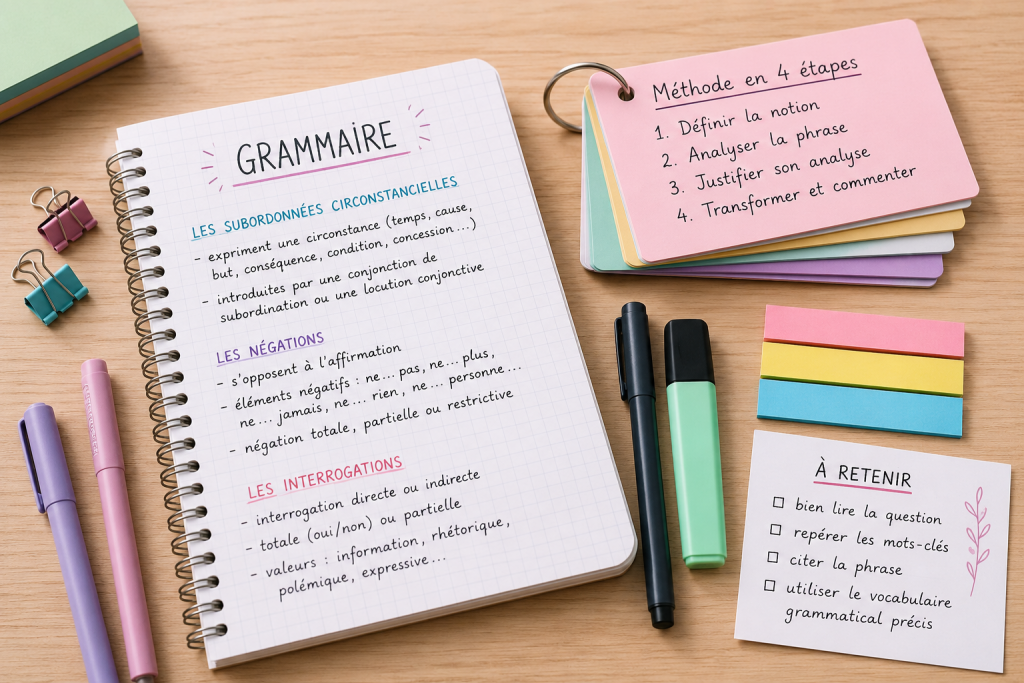 GRAMMAIRE
LES SUBORDONNÉES CIRCONSTANCIELLES
- expriment une circonstance (temps, cause,
but, conséquence, condition, concession...)
- introduites par une conjonction de
subordination ou une locution conjonctive
LES NÉGATIONS
- s'opposent à l'affirmation
- éléments négatifs : ne... pas, ne... plus,
ne... jamais, ne... rien, ne... personne...
- négation totale, partielle ou restrictive
LES INTERROGATIONS
- interrogation directe ou indirecte
- totale (oui/non) ou partielle
- valeurs : information, rhétorique,
polémique, expressive...
Méthode en 4 étapes
1. Définir la notion
2. Analyser la phrase
3. Justifier son analyse
4. Transformer et commenter
À RETENIR
☐ bien lire la question
☐ repérer les mots-clés
☐ citer la phrase
☐ utiliser le vocabulaire
grammatical précis